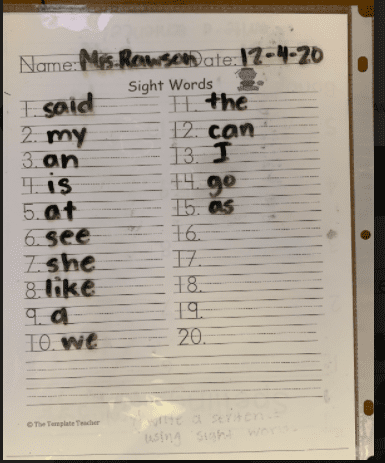 Name: Mrs. Rawson Date: 12-4-20
Sight Words
1. said
2. my
3. an
4. is
5. at
6. see
7. she
8. like
9. a
10. we
11. the
12. can
13. I
14. go
15. as
16.
17.
18.
19.
20.
© The Template Teacher
write a sentence
using sight words